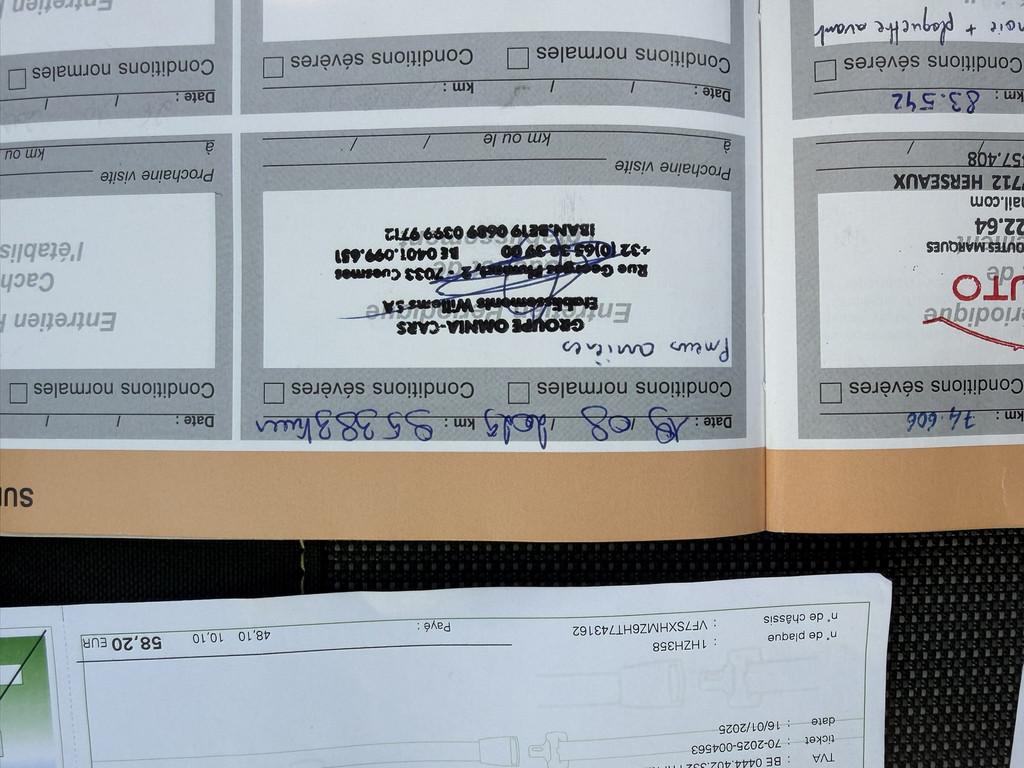 TVA : BE 0444.402.332
ticket : 70-2025-004563
date : 16/01/2025
n° de plaque : 1HZH358
n° de châssis : VF7SXHMZ6HT743162
Payé : 48,10 10,10 58,20 EUR
km : 74.606
Conditions sévères
riodique
UTO
de
OUTES MARQUES
22.64
ail.com
7712 HERSEAUX
457.408
/ /
km : 83.542
Conditions sévères
+ plaquette avant
Date : 19 / 08 / 2025 km : 95383 km
Conditions normales Conditions sévères
Pneus arrières
Entretien Périodique
GROUPE OMNIA-CARS
Etablissements Willems SA
Rue Georges Plumet, 2 - 7033 Cuesmes
+32 (0)65 38 39 00 BE 0401.099.651
IBAN.BE19 0689 0399 9712
Prochaine visite
à km ou le / /
Date : / / km :
Conditions normales Conditions sévères
SUI
Date : / /
Conditions normales
Entretien P
Cach
l'établis
Prochaine visite
à km ou
Date : / /
Conditions normales
Entretien